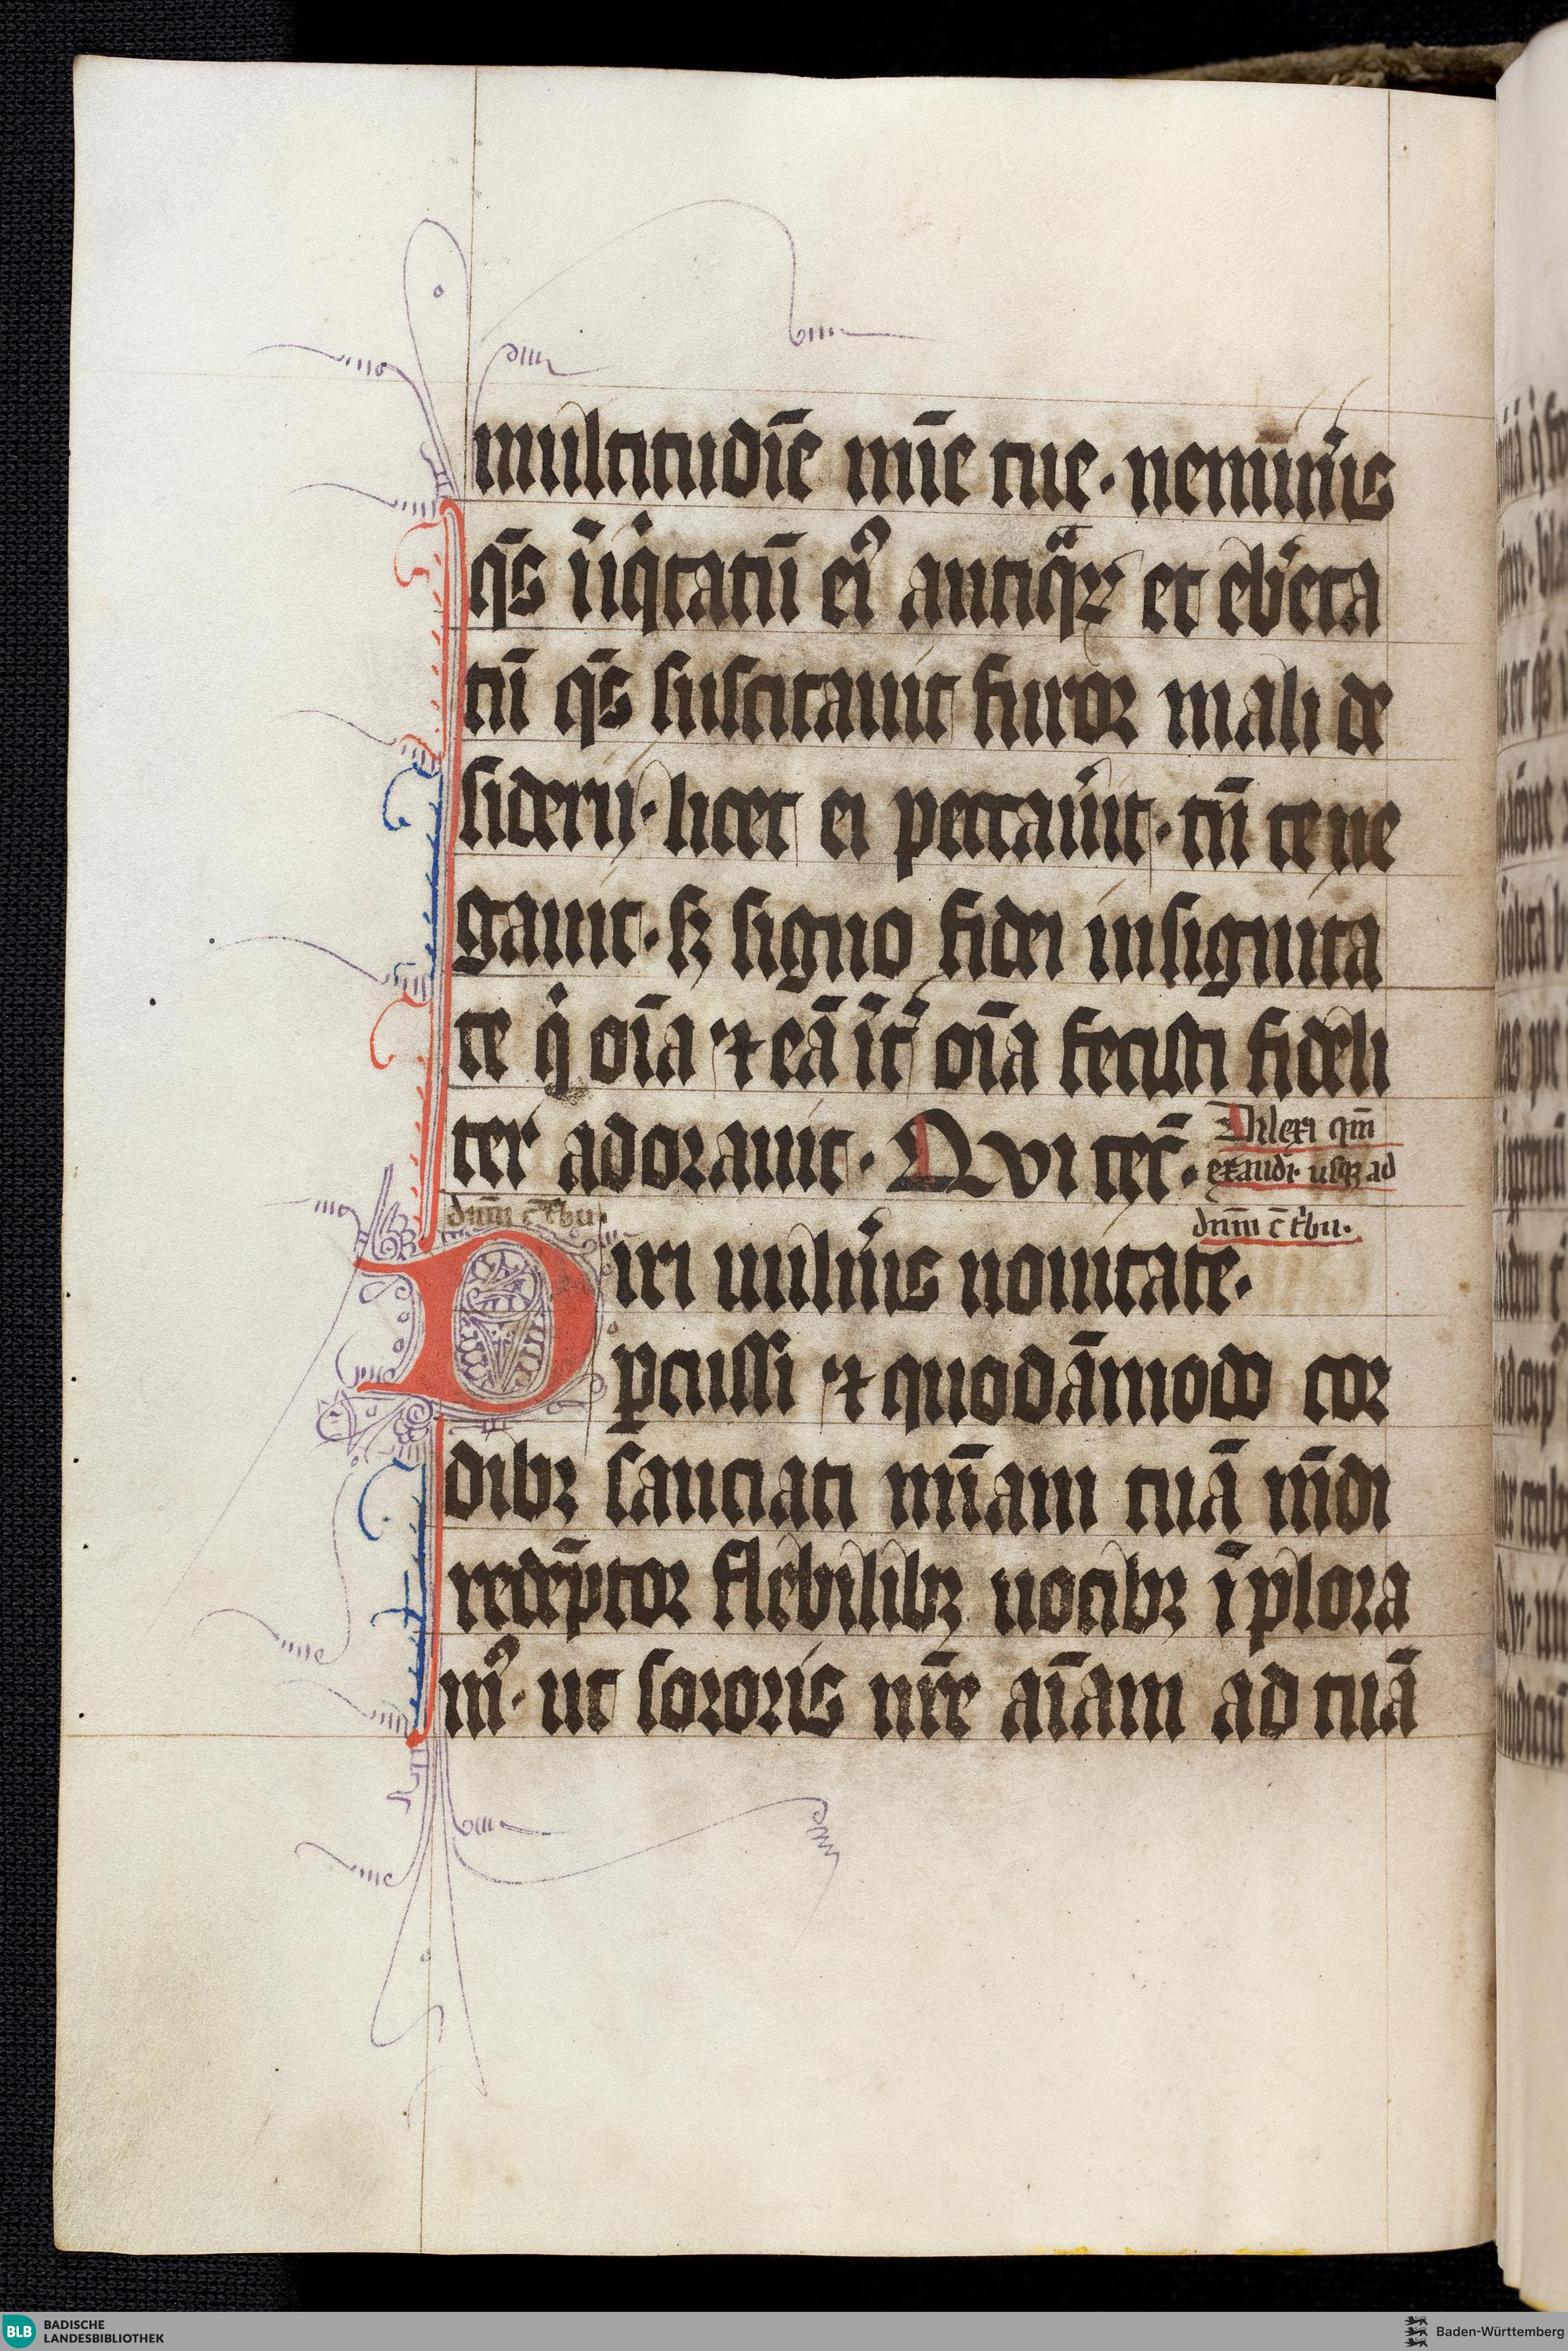 multitudīe mīe tue · nemīn͛is
q̄s īiqͥtatū ei᾽ antiqͣꝝ et eb͛eta
tū q̄s suscitauit furoꝛ mali de
siderij · licet ei peccau͛it · tn̄ te ne
gauit · sꝫ signo fidei insignita
te qͥ oīa ⁊ eā īt͛ oīa fecisti fideli
ter adorauit · Qvi tec̄ · Dilexi qm̄
exaudi͛ · usqꝫ ad
dnm̄ c̄ t͛bu·
dnm̄ c̄ t͛bu·
Diri uuln͛is nouitate·
ꝑcussi ⁊ quodāmodo coꝛ
dibꝫ sauciati mīam tuā mūdi
redēptoꝛ flebilibꝫ uocibꝫ īploꝛa
m᾽· ut soꝛoꝛis nr̄e aīam ad tuā
BLB BADISCHE
LANDESBIBLIOTHEK
Baden-Württemberg